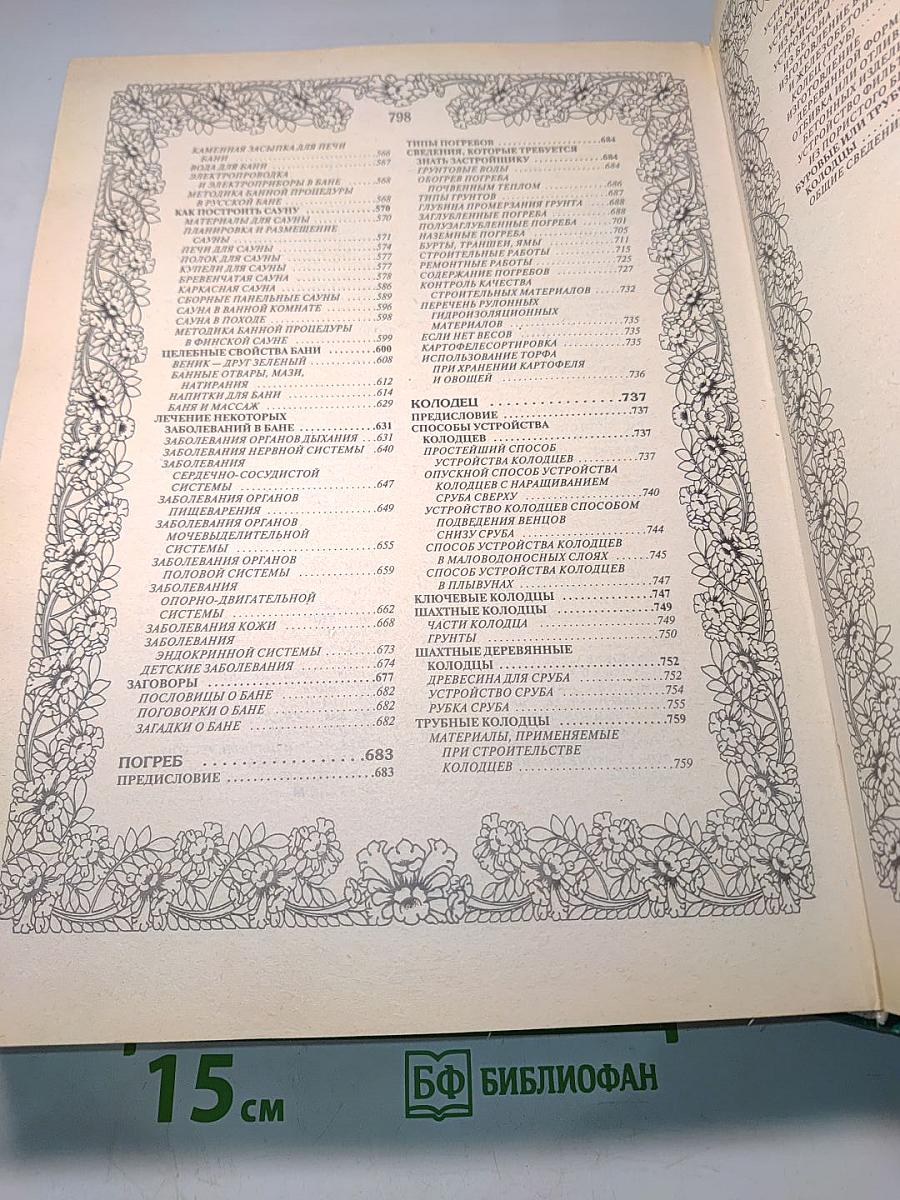 798
КАМЕННАЯ ЗАСЫПКА ДЛЯ ПЕЧИ
БАНИ ...566
ВОДА ДЛЯ БАНИ ...567
ЭЛЕКТРОПРОВОДКА
И ЭЛЕКТРОПРИБОРЫ В БАНЕ ...568
МЕТОДИКА БАННОЙ ПРОЦЕДУРЫ
В РУССКОЙ БАНЕ ...568
КАК ПОСТРОИТЬ САУНУ ...570
МАТЕРИАЛЫ ДЛЯ САУНЫ ...570
ПЛАНИРОВКА И РАЗМЕЩЕНИЕ
САУНЫ ...571
ПЕЧИ ДЛЯ САУНЫ ...574
ПОЛОК ДЛЯ САУНЫ ...577
КУПЕЛИ ДЛЯ САУНЫ ...577
БРЕВЕНЧАТАЯ САУНА ...578
КАРКАСНАЯ САУНА ...586
СБОРНЫЕ ПАНЕЛЬНЫЕ САУНЫ ...589
САУНА В ВАННОЙ КОМНАТЕ ...596
САУНА В ПОХОДЕ ...598
МЕТОДИКА БАННОЙ ПРОЦЕДУРЫ
В ФИНСКОЙ САУНЕ ...599
ЦЕЛЕБНЫЕ СВОЙСТВА БАНИ ...600
ВЕНИК — ДРУГ ЗЕЛЕНЫЙ ...608
БАННЫЕ ОТВАРЫ, МАЗИ,
НАТИРАНИЯ ...612
НАПИТКИ ДЛЯ БАНИ ...614
БАНЯ И МАССАЖ ...629
ЛЕЧЕНИЕ НЕКОТОРЫХ
ЗАБОЛЕВАНИЙ В БАНЕ ...631
ЗАБОЛЕВАНИЯ ОРГАНОВ ДЫХАНИЯ ...631
ЗАБОЛЕВАНИЯ НЕРВНОЙ СИСТЕМЫ ...640
ЗАБОЛЕВАНИЯ
СЕРДЕЧНО-СОСУДИСТОЙ
СИСТЕМЫ ...647
ЗАБОЛЕВАНИЯ ОРГАНОВ
ПИЩЕВАРЕНИЯ ...649
ЗАБОЛЕВАНИЯ ОРГАНОВ
МОЧЕВЫДЕЛИТЕЛЬНОЙ
СИСТЕМЫ ...655
ЗАБОЛЕВАНИЯ ОРГАНОВ
ПОЛОВОЙ СИСТЕМЫ ...659
ЗАБОЛЕВАНИЯ
ОПОРНО-ДВИГАТЕЛЬНОЙ
СИСТЕМЫ ...662
ЗАБОЛЕВАНИЯ КОЖИ ...668
ЗАБОЛЕВАНИЯ
ЭНДОКРИННОЙ СИСТЕМЫ ...673
ДЕТСКИЕ ЗАБОЛЕВАНИЯ ...674
ЗАГОВОРЫ ...677
ПОСЛОВИЦЫ О БАНЕ ...682
ПОГОВОРКИ О БАНЕ ...682
ЗАГАДКИ О БАНЕ ...682
ПОГРЕБ ...683
ПРЕДИСЛОВИЕ ...683
ТИПЫ ПОГРЕБОВ ...684
СВЕДЕНИЯ, КОТОРЫЕ ТРЕБУЕТСЯ
ЗНАТЬ ЗАСТРОЙЩИКУ ...684
ГРУНТОВЫЕ ВОДЫ ...684
ОБОГРЕВ ПОГРЕБА
ПОЧВЕННЫМ ТЕПЛОМ ...686
ТИПЫ ГРУНТОВ ...687
ГЛУБИНА ПРОМЕРЗАНИЯ ГРУНТА ...688
ЗАГЛУБЛЕННЫЕ ПОГРЕБА ...688
ПОЛУЗАГЛУБЛЕННЫЕ ПОГРЕБА ...701
НАЗЕМНЫЕ ПОГРЕБА ...705
БУРТЫ, ТРАНШЕИ, ЯМЫ ...711
СТРОИТЕЛЬНЫЕ РАБОТЫ ...715
РЕМОНТНЫЕ РАБОТЫ ...725
СОДЕРЖАНИЕ ПОГРЕБОВ ...727
КОНТРОЛЬ КАЧЕСТВА
СТРОИТЕЛЬНЫХ МАТЕРИАЛОВ ...732
ПЕРЕЧЕНЬ РУЛОННЫХ
ГИДРОИЗОЛЯЦИОННЫХ
МАТЕРИАЛОВ ...735
ЕСЛИ НЕТ ВЕСОВ ...735
КАРТОФЕЛЕСОРТИРОВКА ...735
ИСПОЛЬЗОВАНИЕ ТОРФА
ПРИ ХРАНЕНИИ КАРТОФЕЛЯ
И ОВОЩЕЙ ...736
КОЛОДЕЦ ...737
ПРЕДИСЛОВИЕ ...737
СПОСОБЫ УСТРОЙСТВА
КОЛОДЦЕВ ...737
ПРОСТЕЙШИЙ СПОСОБ
УСТРОЙСТВА КОЛОДЦЕВ ...737
ОПУСКНОЙ СПОСОБ УСТРОЙСТВА
КОЛОДЦЕВ С НАРАЩИВАНИЕМ
СРУБА СВЕРХУ ...740
УСТРОЙСТВО КОЛОДЦЕВ СПОСОБОМ
ПОДВЕДЕНИЯ ВЕНЦОВ
СНИЗУ СРУБА ...744
СПОСОБ УСТРОЙСТВА КОЛОДЦЕВ
В МАЛОВОДОНОСНЫХ СЛОЯХ ...745
СПОСОБ УСТРОЙСТВА КОЛОДЦЕВ
В ПЛЫВУНАХ ...747
КЛЮЧЕВЫЕ КОЛОДЦЫ ...747
ШАХТНЫЕ КОЛОДЦЫ ...749
ЧАСТИ КОЛОДЦА ...749
ГРУНТЫ ...750
ШАХТНЫЕ ДЕРЕВЯННЫЕ
КОЛОДЦЫ ...752
ДРЕВЕСИНА ДЛЯ СРУБА ...752
УСТРОЙСТВО СРУБА ...754
РУБКА СРУБА ...755
ТРУБНЫЕ КОЛОДЦЫ ...759
МАТЕРИАЛЫ, ПРИМЕНЯЕМЫЕ
ПРИ СТРОИТЕЛЬСТВЕ
КОЛОДЦЕВ ...759
КОЛОДЦЫ
15 см
БФ БИБЛИОФАН